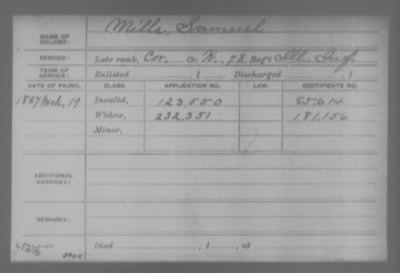 NAME OF SOLDIER: Mills, Samuel
SERVICE: Late rank, Cor. Co. H, 78 Reg't Ill. Inf.
TERM OF SERVICE: Enlisted , 1 Discharged , 1
DATE OF FILING. CLASS. APPLICATION NO. LAW. CERTIFICATE NO.
1867 Mch. 19 Invalid, 123,550 85,614
Widow, 232,351 181,156
Minor,
ADDITIONAL SERVICES:
REMARKS:
Died , 1 , at